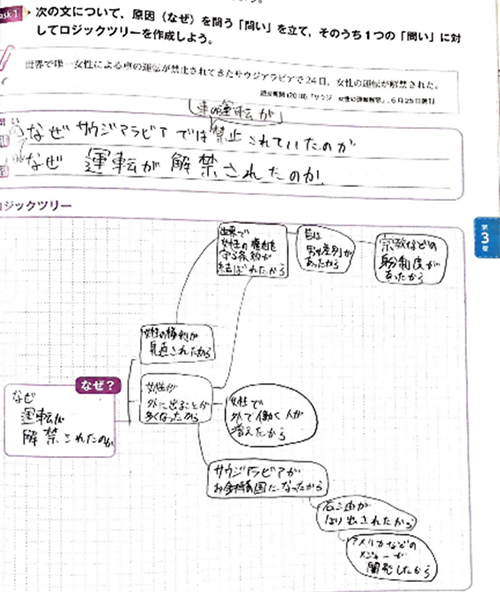 ask 1
次の文について，原因（なぜ）を問う「問い」を立て，そのうち１つの「問い」に対
してロジックツリーを作成しよう。
世界で唯一女性による車の運転が禁止されてきたサウジアラビアで24日，女性の運転が解禁された。
車の運転が
なぜサウジアラビアでは禁止されていたのか
なぜ 運転が解禁されたのか
ロジックツリー
第
3
章
なぜ？
なぜ
運転が
解禁されたのか
女性の権利が
見直されたから
女性の権利を
守る条約が
結ばれたから
昔は
男女差別が
あったから
宗教などの
制度が
あったから
女性が
外に出ることが
多くなったから
女性で
外で働く人が
増えたから
サウジアラビアが
お金持ち国になったから
石油が
ほり出されたから
アメリカなどの
メジャーが
開発したから